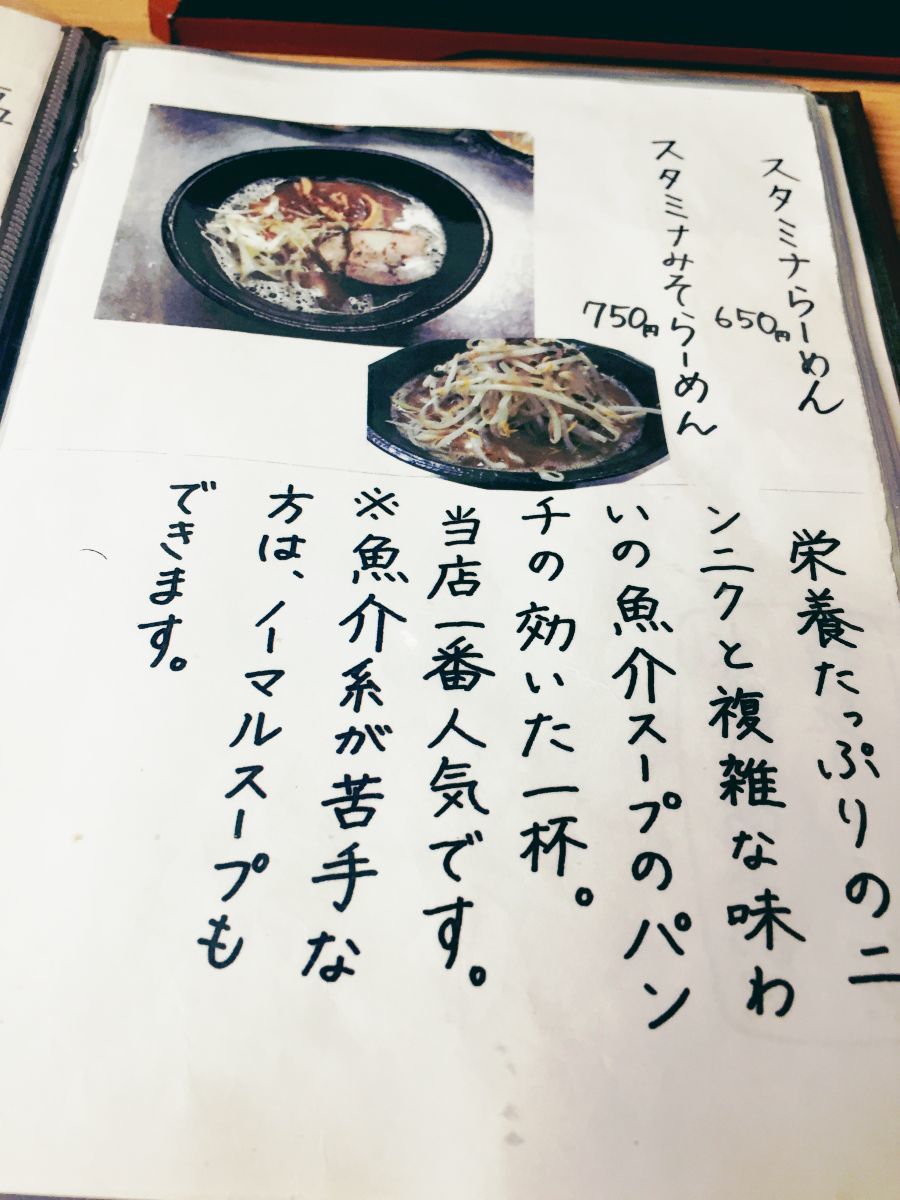 スタミナらーめん
650円
スタミナみそらーめん
750円
栄養たっぷりのニ
ンニクと複雑な味わ
いの魚介スープのパン
チの効いた一杯。
当店一番人気です。
※魚介系が苦手な
方は、ノーマルスープも
できます。